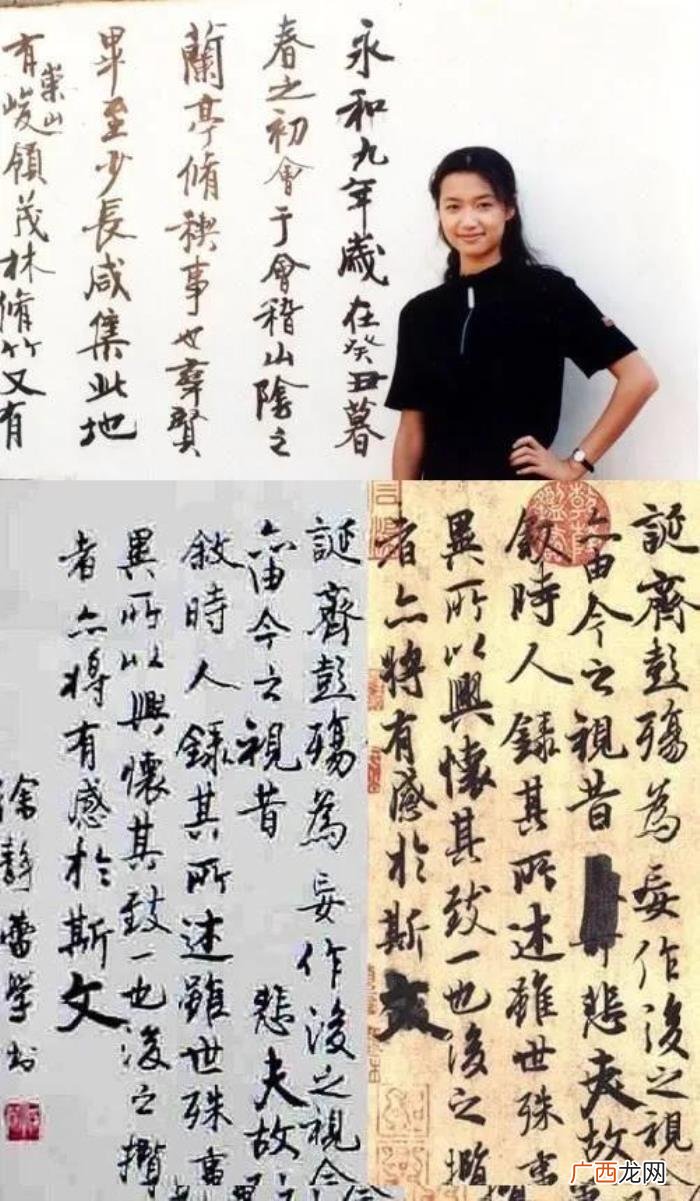 永和九年歲在癸丑暮
春之初會于會稽山陰之
蘭亭脩稧事也羣賢
畢至少長咸集此地
有崇山峻領茂林脩竹又有
誕齊彭殤為妄作後之視今
亦由今之視昔悲夫故
敘時人錄其所述雖世殊事
異所以興懷其致一也後之攬
者亦將有感於斯文
徐靜蕾學書
誕齊彭殤為妄作後之視今
亦由今之視昔悲夫故
敘時人錄其所述雖世殊事
異所以興懷其致一也後之攬
者亦將有感於斯文
广西龙网